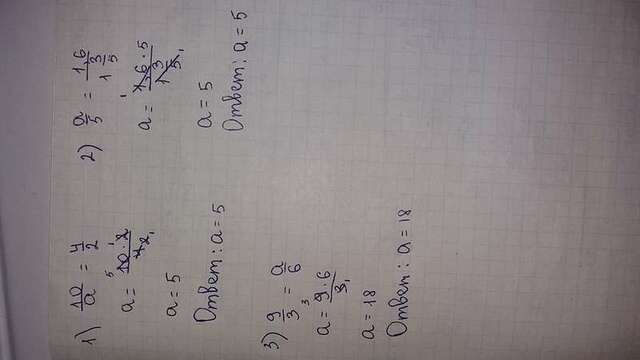 1) 10/a = 4/2
a = 10 · 2 / 4 2
a = 5
Ответ: a = 5
2) a/5 = 1,6 / 1 3/5
a = 1,6 · 5 / 1 3/5
a = 5
Ответ: a = 5
3) 9/3 = a/6
a = 9 · 6 / 3
a = 18
Ответ: a = 18